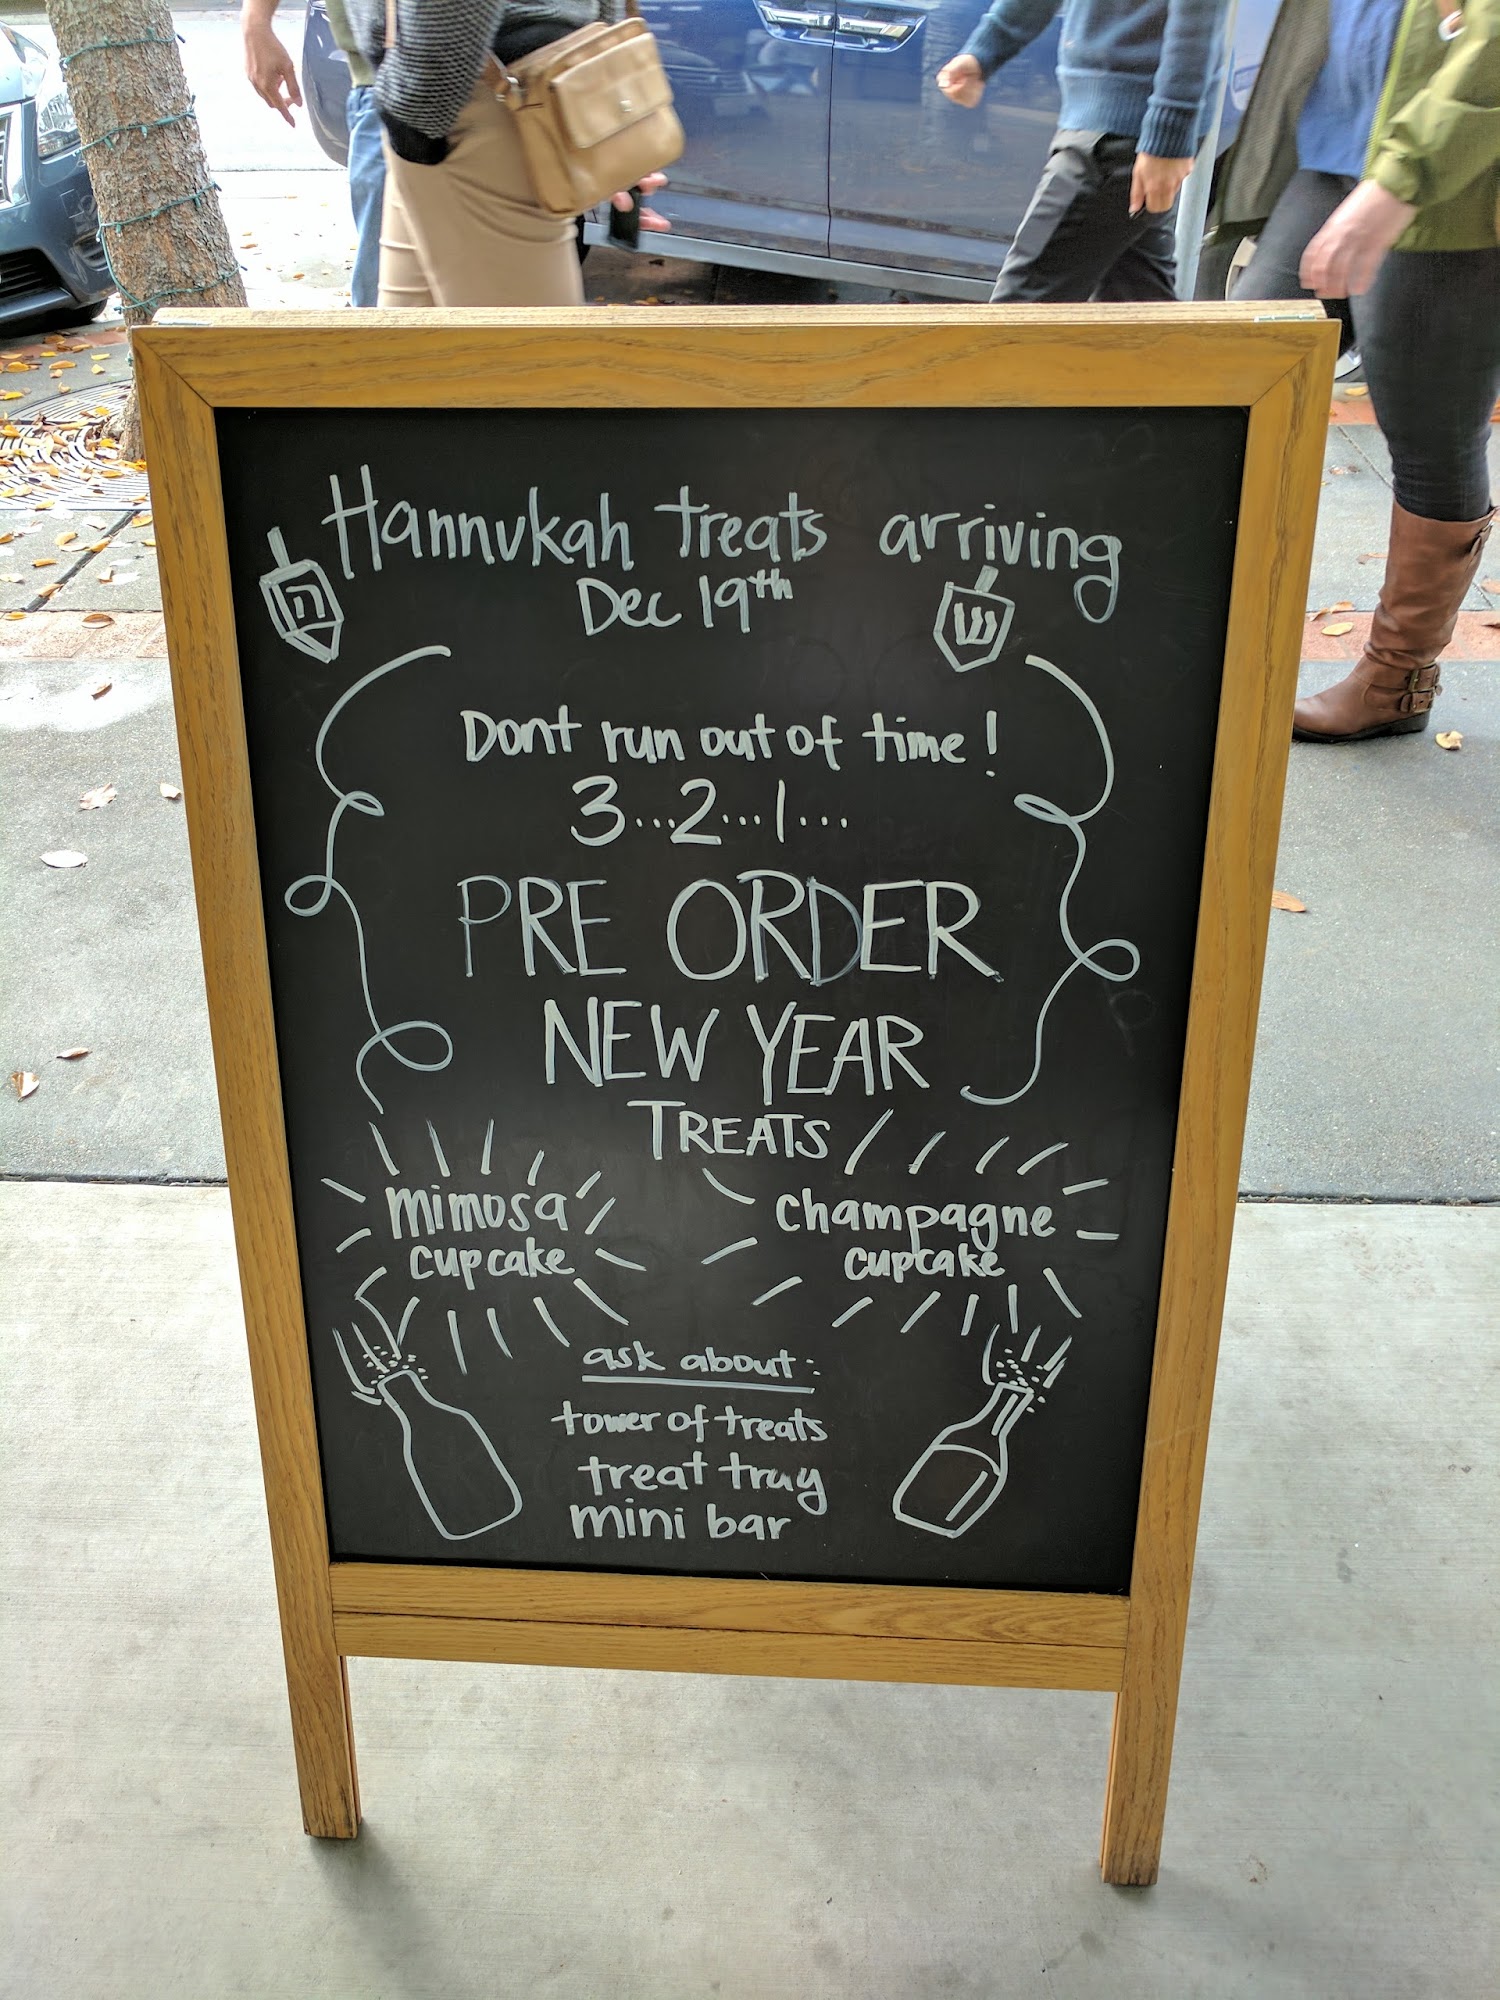 Hannukah treats arriving
Dec 19th
ה
ש
Dont run out of time!
3...2...1...
PRE ORDER
NEW YEAR
TREATS
mimosa
cupcake
champagne
cupcake
ask about:
tower of treats
treat tray
mini bar